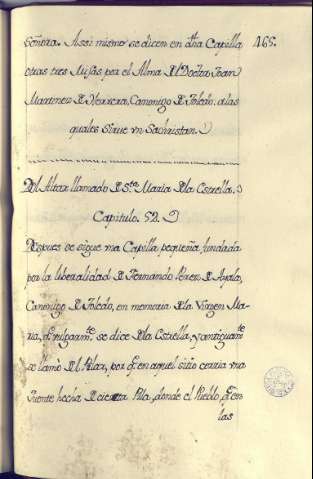 Señora. Assi mismo se dicen en dha Capilla 465.
otras tres Missas por el Alma del Doctor Joan
Martinez de Herrera, Canonigo de Toledo. a las
quales sirve vn Sachristan.
Del Altar llamado de Sta. Maria de la Estrella.
Capitulo. 52.
Despues se sigue vna Capilla pequeña fundada
por la liberalidad de Fernando Perez de Ayala,
Canonigo de Toledo, en memoria de la Virgen Ma-
ria, q. vulgarmte. se dice de la Estrella, y antiguamte.
se llamò del Pilar, por q. en aquel sitio cerria vna
Fuente hecha de cierta Pila, donde el Pueblo, q. en
las